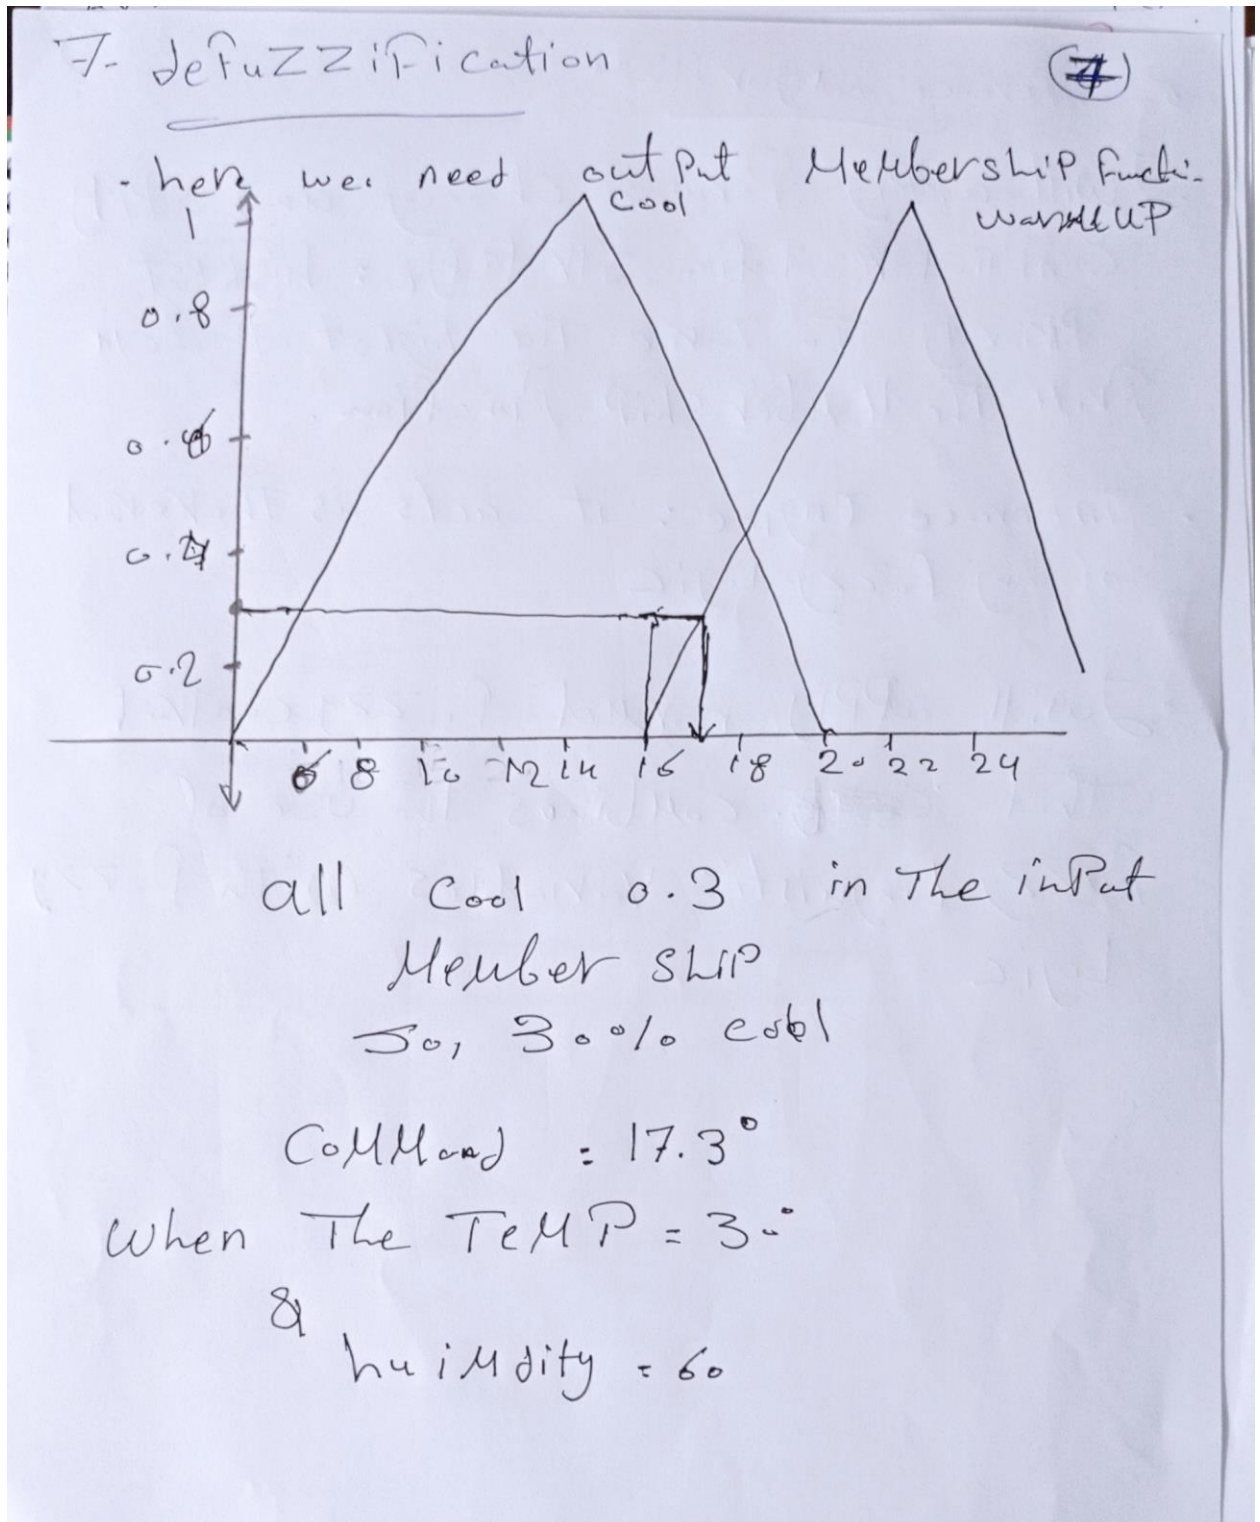 7- defuzzification
7
- here we need output Membership functi-
cool
warm UP
1
0.8
0.6
0.4
0.2
6 8 10 12 14 16 18 20 22 24
all cool 0.3 in The inPut
Member ShiP
So, 30% cool
CoMMand = 17.3°
when The TeMP = 30°
&
huiMdity = 60